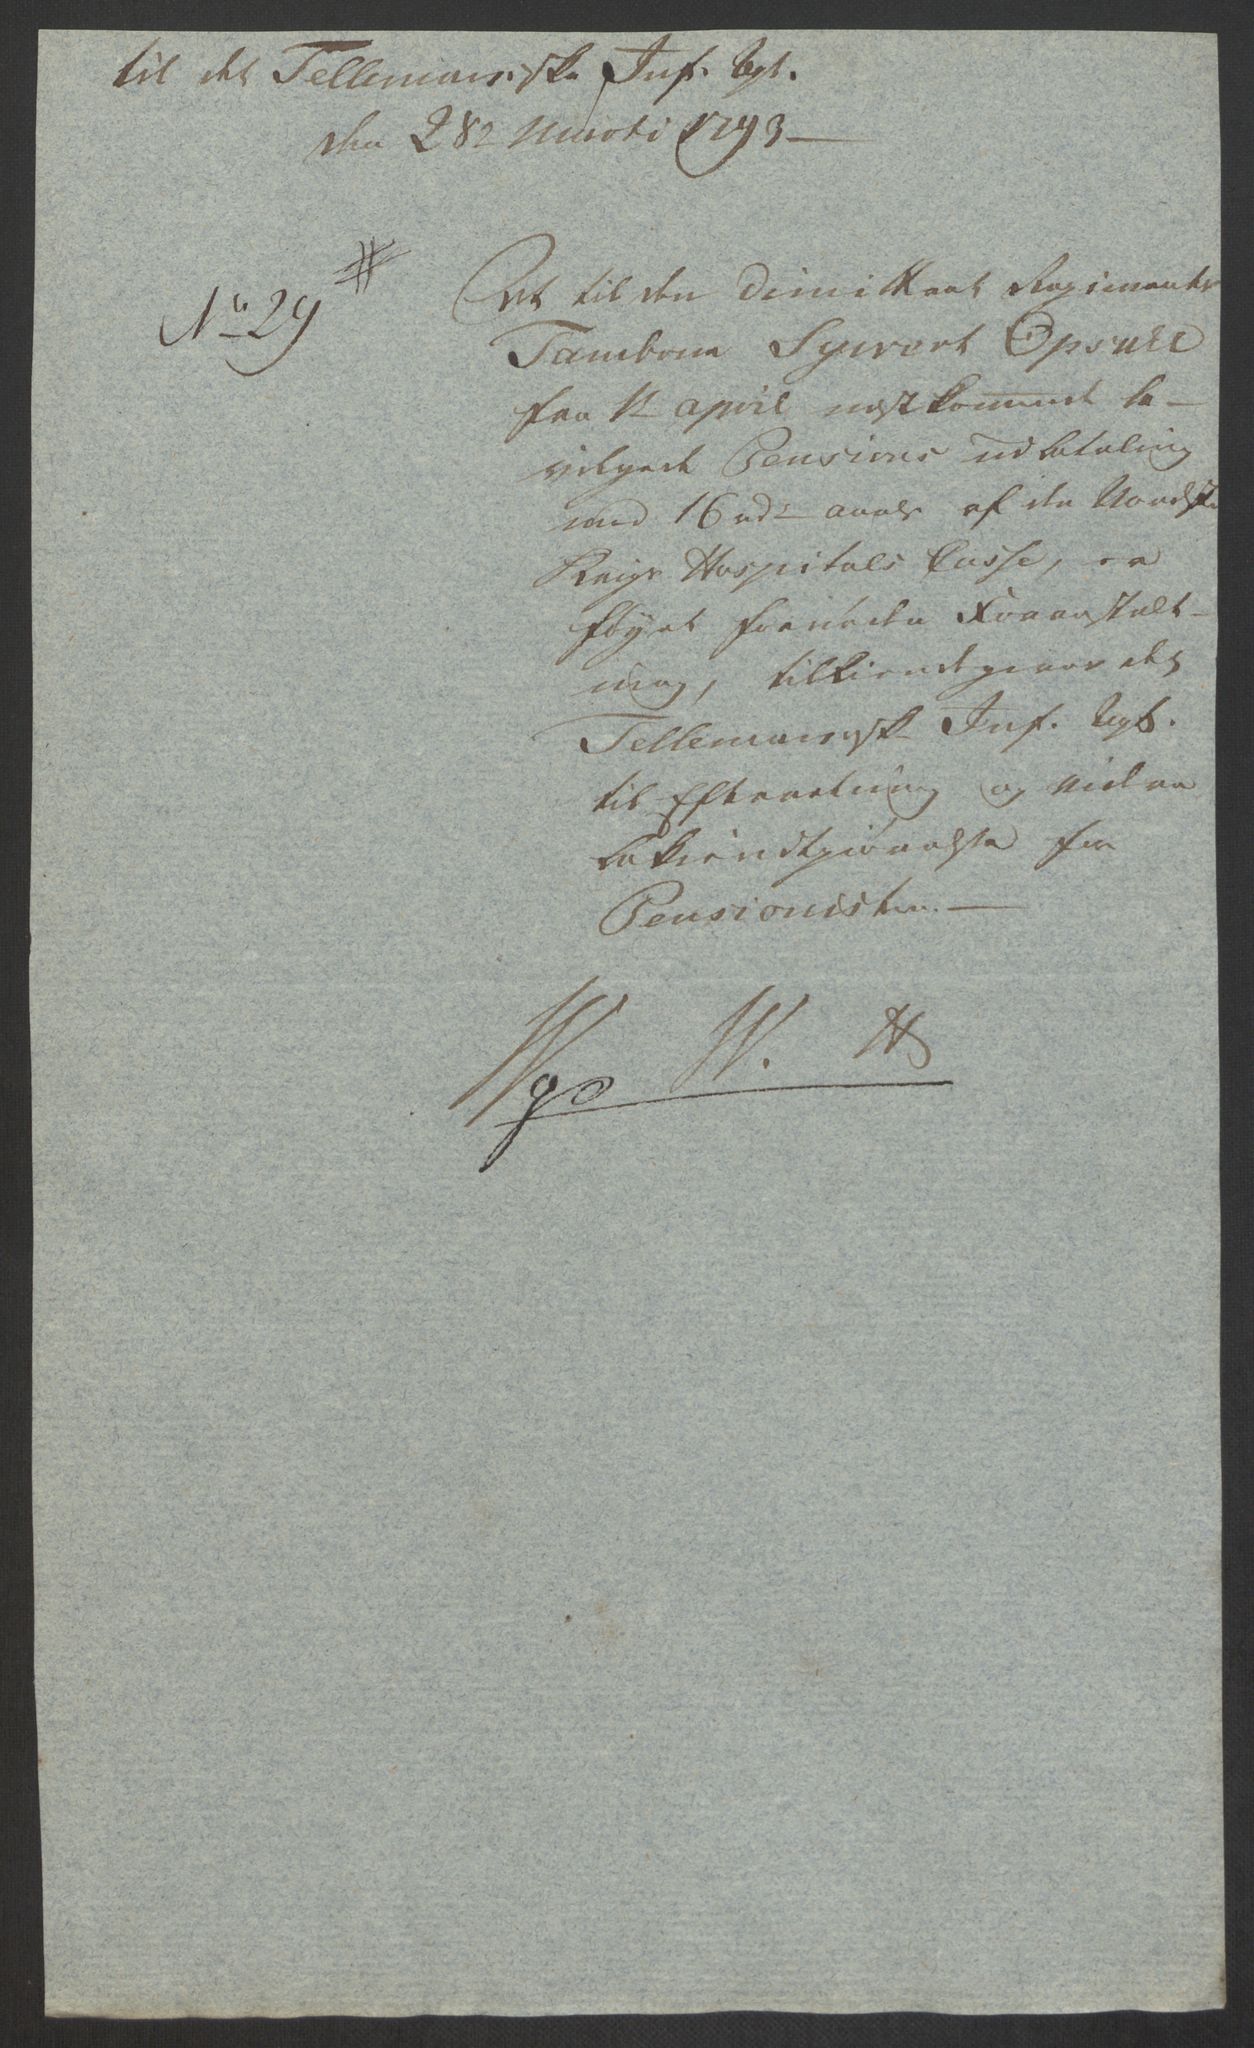 til det Tellemarkske Inf. Rgt.
den 28 Marti 1793 —
No 29 #
At til den dimitteret Regiments
Tambour Syvert Opsahl
fra 1te april nestkommende be-
vilgede Pensions udbetaling
med 16 rdr aarlig af den Nordske
Krigs Hospitals Casse, er
føyet fornøden Foranstalt-
ning, tilkiendegives det
Tellemarkske Inf. Rgt.
til Efterretning og videre
bekiendtgiørelse for
Pensionisten. —
W. H